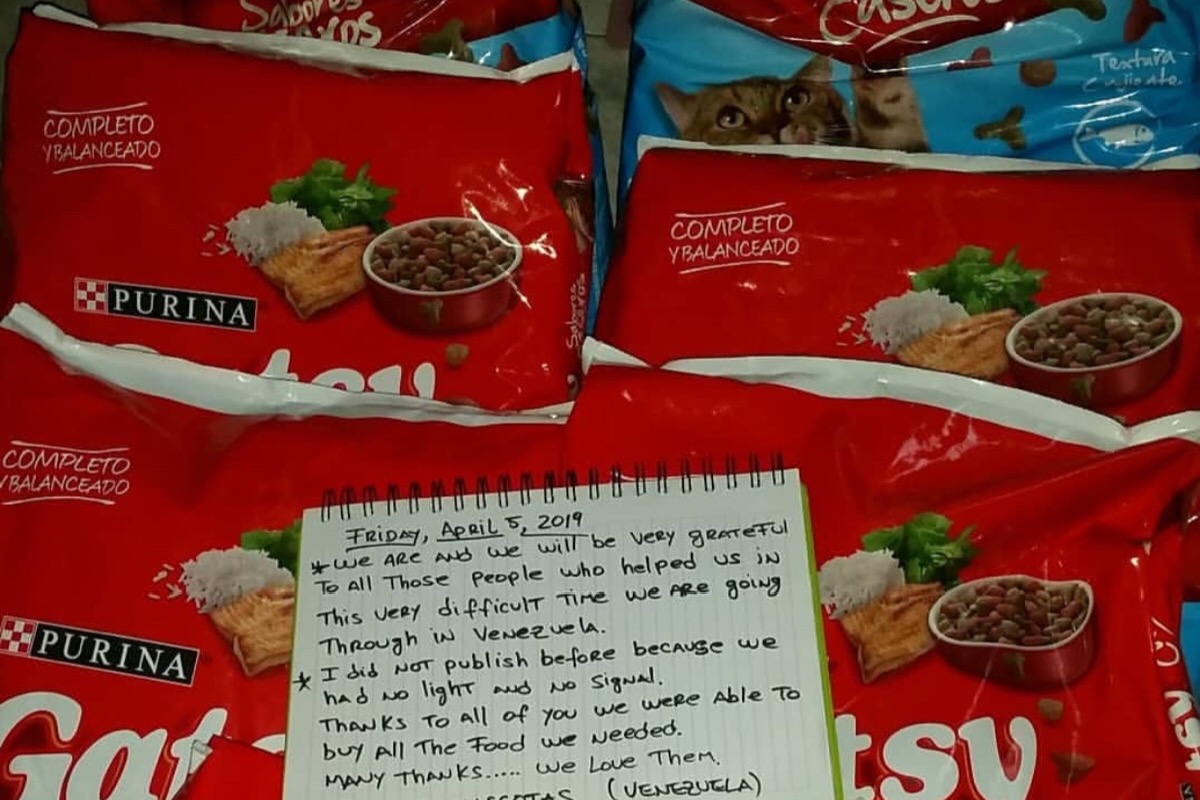 Sabores
Caseros
COMPLETO
Y BALANCEADO
Textura
COMPLETO
Y BALANCEADO
PURINA
COMPLETO
Y BALANCEADO
PURINA
FRIDAY, APRIL 5, 2019
* WE ARE AND WE WILL BE VERY GRATEFUL
TO ALL THOSE PEOPLE WHO HELPED US IN
THIS VERY DIFFICULT TIME WE ARE GOING
THROUGH IN VENEZUELA.
* I DID NOT PUBLISH BEFORE BECAUSE WE
HAD NO LIGHT AND NO SIGNAL.
THANKS TO ALL OF YOU WE WERE ABLE TO
BUY ALL THE FOOD WE NEEDED.
MANY THANKS..... WE LOVE THEM.
(VENEZUELA)